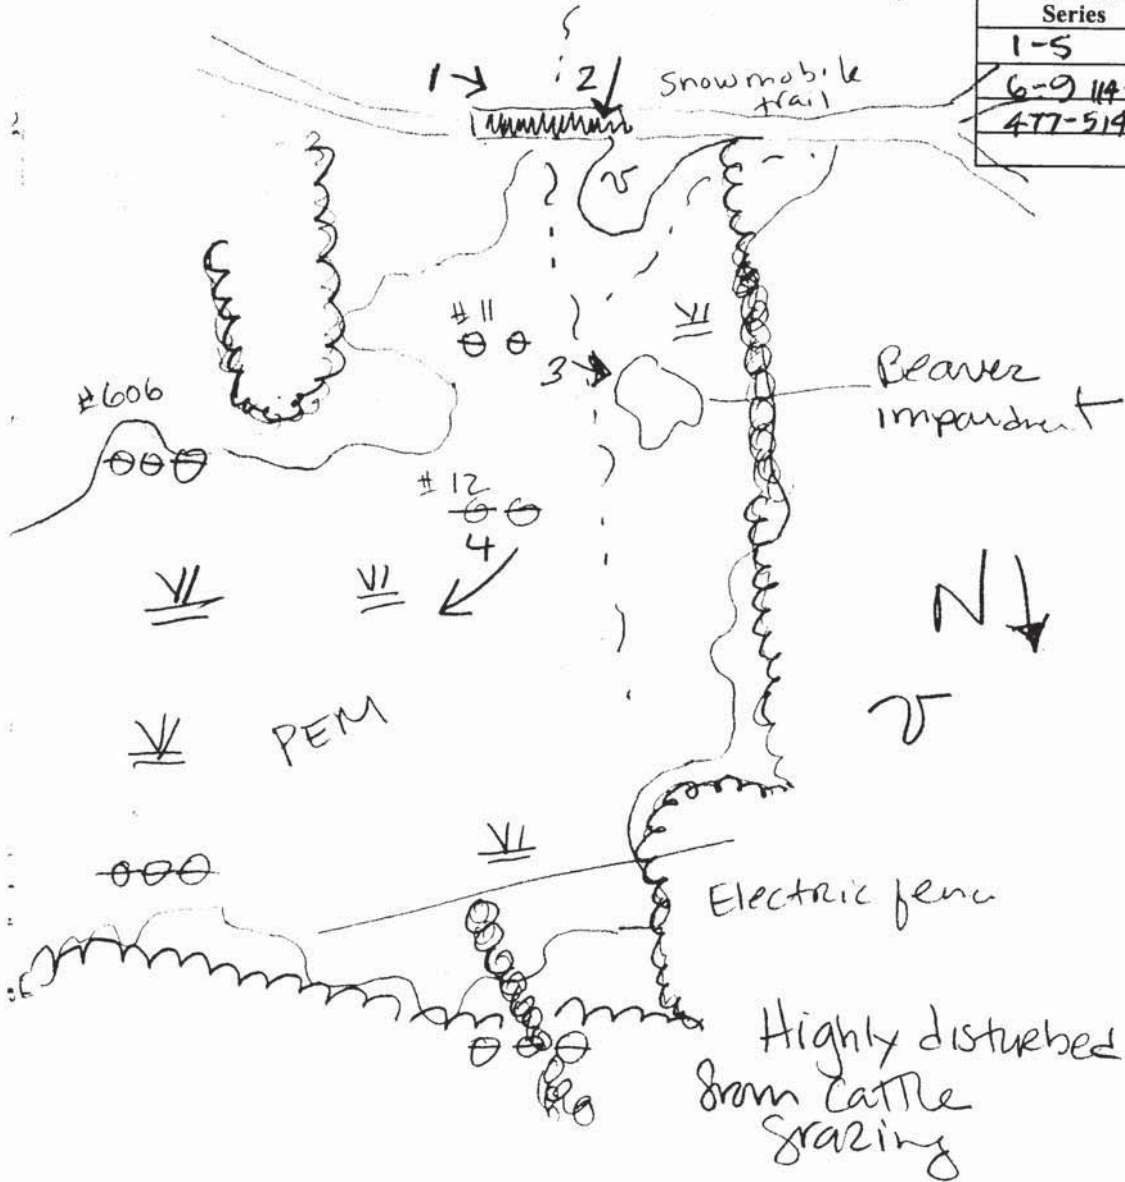 Series
1-5
6-9 114-
477-514
1
2
Snowmobile
trail
v
#11
3
Beaver
impoundment
#606
#12
4
N
v
PEM
Electric fence
Highly disturbed
from cattle
grazing